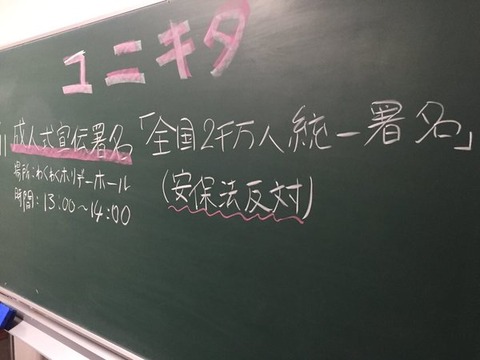 ユニキタ
成人式宣伝署名「全国2千万人統一署名」
場所:わくわくホリデーホール
(安保法反対)
時間:13:00~14:00